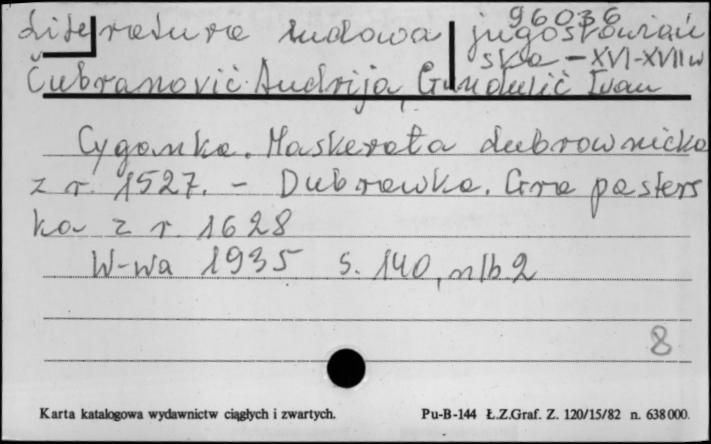 96036
Literatura ludowa jugosłowiań
ska - XVI-XVII w
Čubranović Andrija, Gundulić Ivan
Cyganka. Maskerata dubrownicka
z r. 1527. - Dubrawka. Gra paster
ska z r. 1628
W-wa 1935 s. 140, nlb. 2
8
Karta katalogowa wydawnictw ciągłych i zwartych. Pu-B-144 Ł.Z.Graf. Z. 120/15/82 n. 638000.